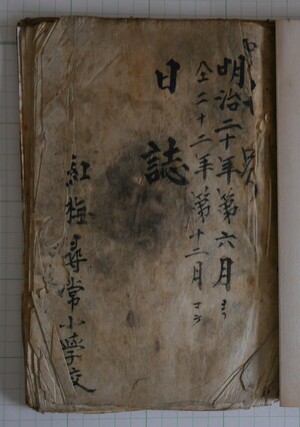 明治二十年第六月より
仝二十二年第十二月マテ
日誌
紅梅尋常小學校